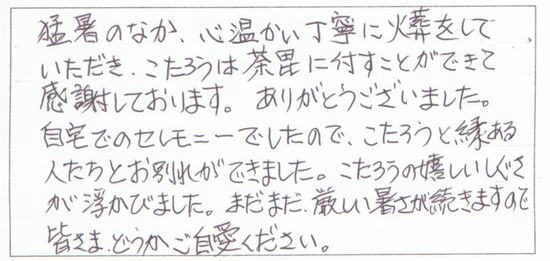 猛暑のなか、心温かい丁寧に火葬をして
いただき、こたろうは荼毘に付すことができて
感謝しております。ありがとうございました。
自宅でのセレモニーでしたので、こたろうと縁ある
人たちとお別れができました。こたろうの嬉しいしぐさ
が浮かびました。まだまだ、厳しい暑さが続きますので
皆さま、どうかご自愛ください。